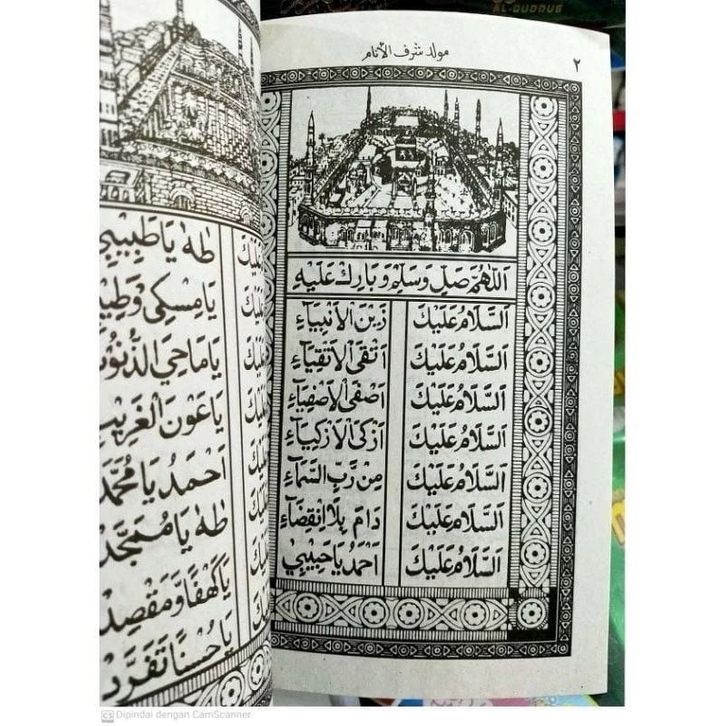 AL-QUDDUS
مولد شرف الأنام
٢
اَللّٰهُمَّ صَلِّ وَسَلِّمْ وَبَارِكْ عَلَيْهِ
اَلسَّلَامُ عَلَيْكَ زَيْنَ الْاَنْبِيَاءِ
اَلسَّلَامُ عَلَيْكَ اَتْقَى الْاَتْقِيَاءِ
اَلسَّلَامُ عَلَيْكَ اَصْفَى الْاَصْفِيَاءِ
اَلسَّلَامُ عَلَيْكَ اَزْكَى الْاَزْكِيَاءِ
اَلسَّلَامُ عَلَيْكَ مِنْ رَّبِّ السَّمَاءِ
اَلسَّلَامُ عَلَيْكَ دَامَ بِلَا انْقِضَاءِ
اَلسَّلَامُ عَلَيْكَ اَحْمَدُ يَا حَبِيْبِيْ
عَلَيْكَ طٰهٰ يَا طَبِيْبِيْ
يَا مِسْكِيْ
يَا مَاحِيَ الذُّنُوْبِ
يَا عَوْنَ الْغَرِيْبِ
اَحْمَدُ يَا مُحَمَّدْ
طٰهٰ يَا مُمَجَّدْ
يَا كَهْفًا وَّمَقْصِدْ
يَا حُسْنًا تَفَرَّدْ
CS Dipindai dengan CamScanner